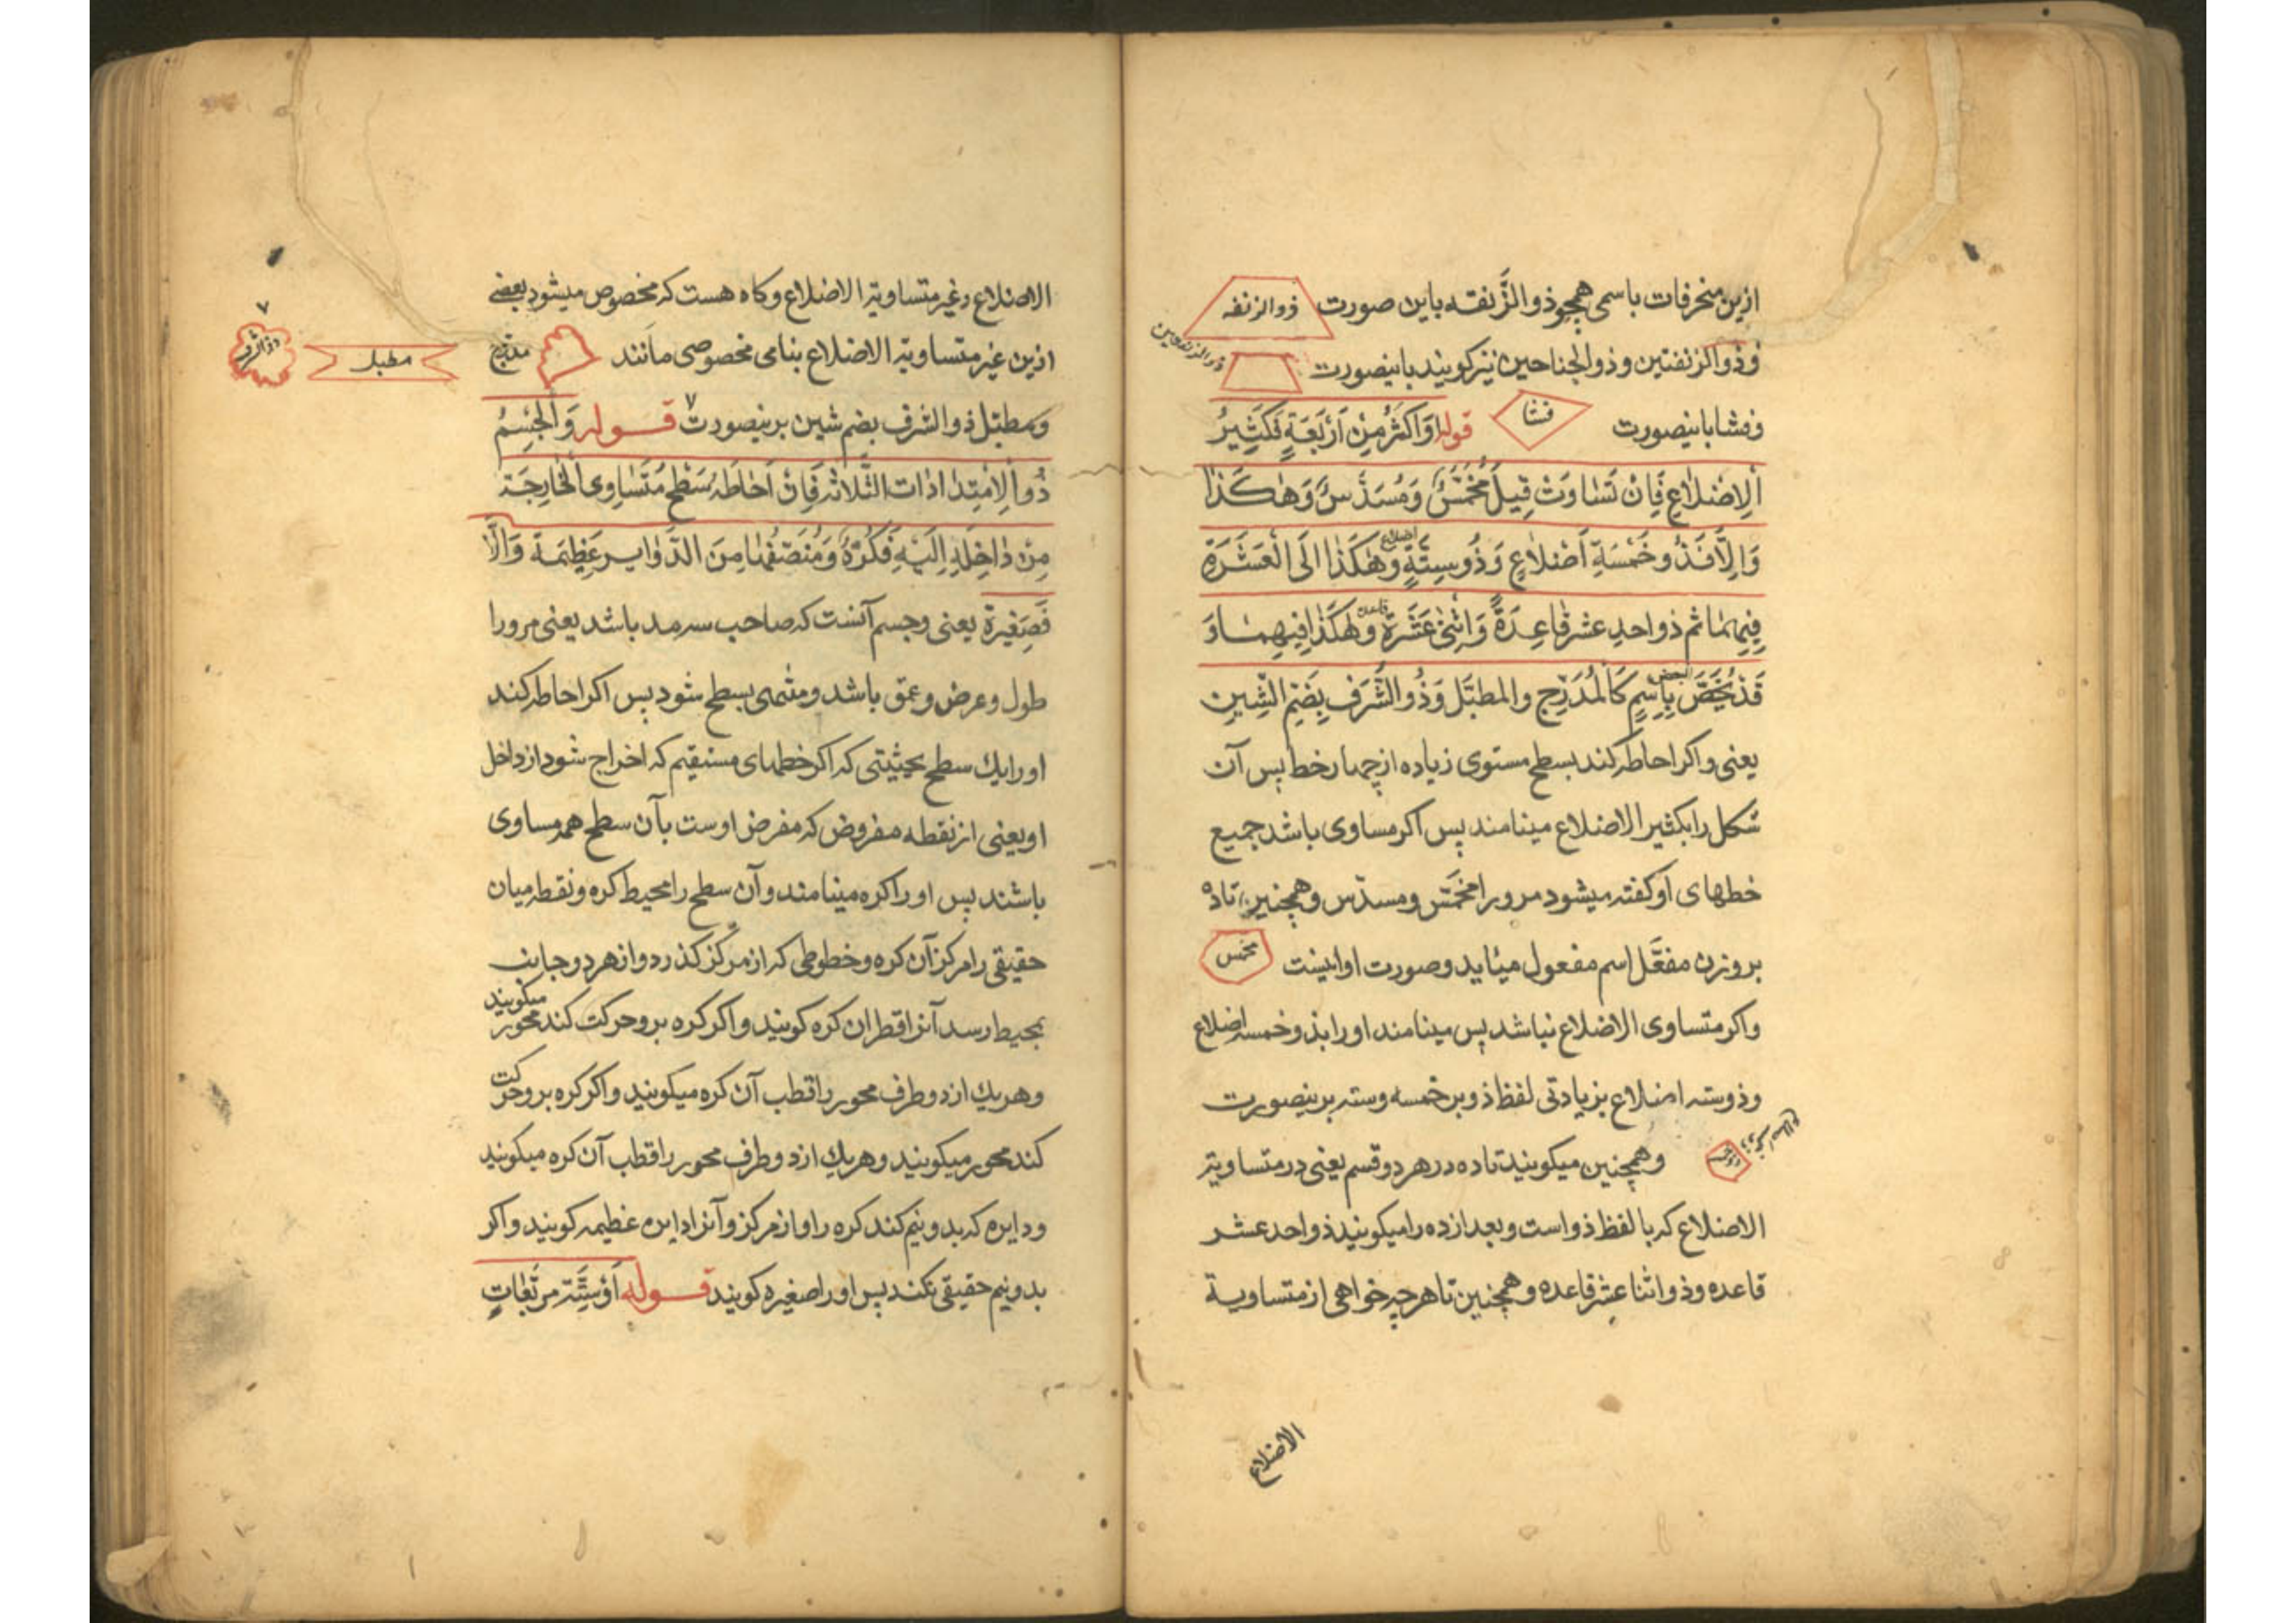 ازین منحرفات باسمی همچو ذو الزَّنفقه باین صورت ذوالزنفه
وذوالزنفتین وذوالجناحین نیز کویند باینصورت
ذوالزنفتین
وقشا باینصورت قثا قوله وَاَکثَرُ مِنْ اَرْبَعَةٍ فَکَثٖیرُ
اَلاِضْلاعِ فَاِنْ تَسٰاوَتْ قٖیلَ مُخَمَّسٌ وَمُسَدَّسٌ وَهٰکَذٰا
وَاِلاّٰ فَذُو خَمْسَةِ اَضْلاٰعٍ وَذُو سِتَّةِ اضلاع وَهٰکَذٰا اِلَی الْعَشَرَةِ
فٖیهِمٰا ثم ذو احدی عشر قٰاعِدَةً وَاثنیٰ عَشَرَة قاعدة وَهٰکَذٰا فٖیهِمٰا وَ
قَدْ یُخَصُّ البعض بِاِسْمٍ کَالْمُدَرَّجِ والمطبَّل وَذُو الشُّرَفِ بِضَمِّ الشّٖینِ
یعنی واکر احاطه کند بسطح مستوی زیاده از چهار خط پس آن
شکل را بکثیر الاضلاع مینامند پس اکر مساوی باشد جمیع
خطهای او کفته میشود مرورا مخمّس ومسدّس وهمچنین تا ده
بروزن مفعَّل اسم مفعول میئاید وصورت او اینست مخمس
واکر متساوی الاضلاع نباشد پس مینامند اورا بذو خمسه اضلاع
وذو سته اضلاع بزیادتی لفظ ذو بر خمسه وسته برینصورت
وهمچنین میکویند تا ده در هر دو قسم یعنی در متساویة
الاضلاع که با لفظ ذو است وبعد از ده را میکویند ذو احد عشر
قاعده وذو اثنا عشر قاعده وهمچنین تا هر چه خواهی از متساویة
الاضلاع
الاضلاع وغیر متساویة الاضلاع وکاه هست که مخصوص میشود بعضے
ازین غیر متساویة الاضلاع بنامی مخصوصی مانند مدرج مطبل ذوالشرف ۷
ومطبّل ذو الشرف بضم شین برینصورت ۷ قوله وَالْجِسْمُ
ذُو الْاِمْتِدٰادٰات الثَّلاثه فَاِنْ اَحٰاطَهُ سَطْحٌ مُتَسٰاوِی الْخٰارِجَة
مِنْ دٰاخِلِهِ اِلَیْهِ فَکُرَةٌ وَمُنَصّفُهٰا مِنَ الدَّوٰایرِ عَظِیمَة وَاِلاّٰ
فَصَغٖیرَة یعنی وجسم آنست که صاحب سه مد باشد یعنی مرورا
طول وعرض وعمق باشد ومنتهی بسطح شود پس اکر احاطه کند
اورا یك سطح بحیثیتی که اکر خطهای مستقیم که اخراج شود از داخل
او یعنی از نقطه مفروض که مفرض اوست بآن سطح همه مساوی
باشند پس اورا کره مینامند وآن سطح را محیط کره ونقطه میان
حقیقی را مرکز آن کره وخطوطی که از مرکز کذرد واز هر دو جانب
بمحیط رسد آنرا قطر ان کره کویند واکر کره برو حرکت کند محور میکویند
وهریك از دو طرف محور را قطب آن کره میکویند واکر کره برو حرکت
کند محور میکویند وهریك از دو طرف محور را قطب آن کره میکویند
ودایره که بدونیم کند کره را واز مرکز وآنرا دایره عظیمه کویند واکر
بدونیم حقیقی نکند پس اورا صغیره کویند قوله اَوْ سِتَّة مربَّعٰاتٍ